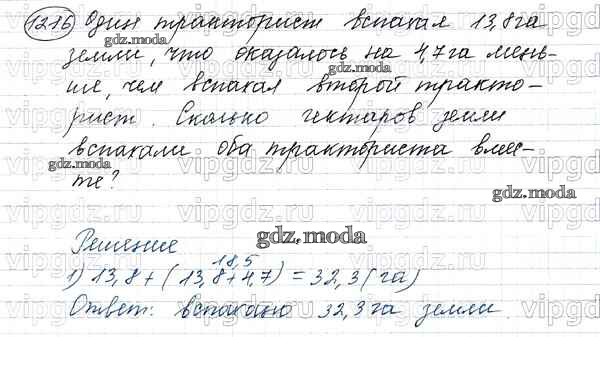 1216 Один тракторист вспахал 13,8 га
земли, что оказалось на 4,7 га мень-
ше, чем вспахал второй тракто-
рист. Сколько гектаров земли
вспахали оба тракториста вмес-
те?
Решение
18,5
1) 13,8 + (13,8 + 4,7) = 32,3 (га)
Ответ: вспахано 32,3 га земли.
gdz.moda
vipgdz.ru